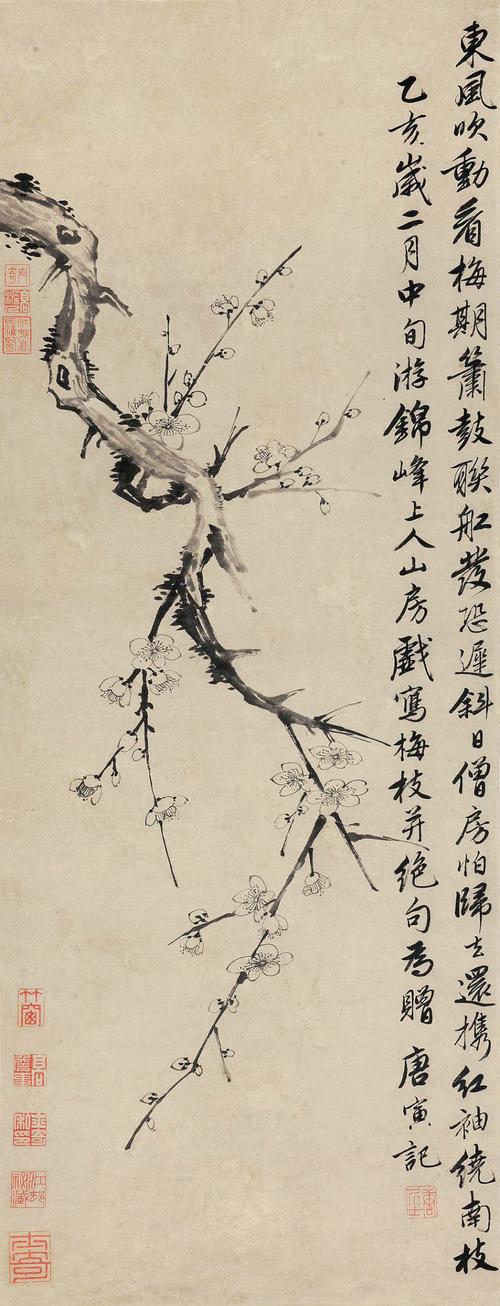 東風吹動看梅期簫鼓聯船發恐遲斜日僧房怕歸去還携紅袖繞南枝
乙亥歲二月中旬游錦峰上人山房戲寫梅枝并絕句為贈 唐寅記
竹窗